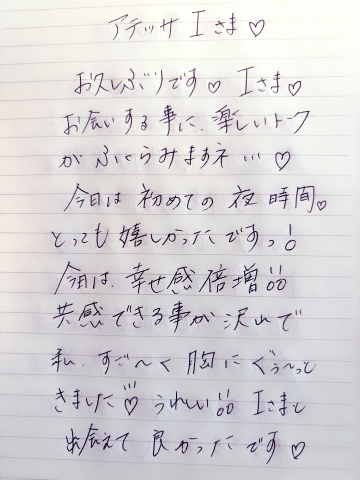 アテッサ Iさま♡
お久しぶりです♡ Iさま♡
お会いする事に、楽しいトーク
がふくらみますネ…♡
今日は初めての夜時間♡
とっても嬉しかったですっ!
今日は、幸せ感倍増!!
共感できる事が沢山で
私、すご〜く胸にぐぅ〜っと
きました!!!♡ うれしい!! Iさまと
出会えて良かったです♡